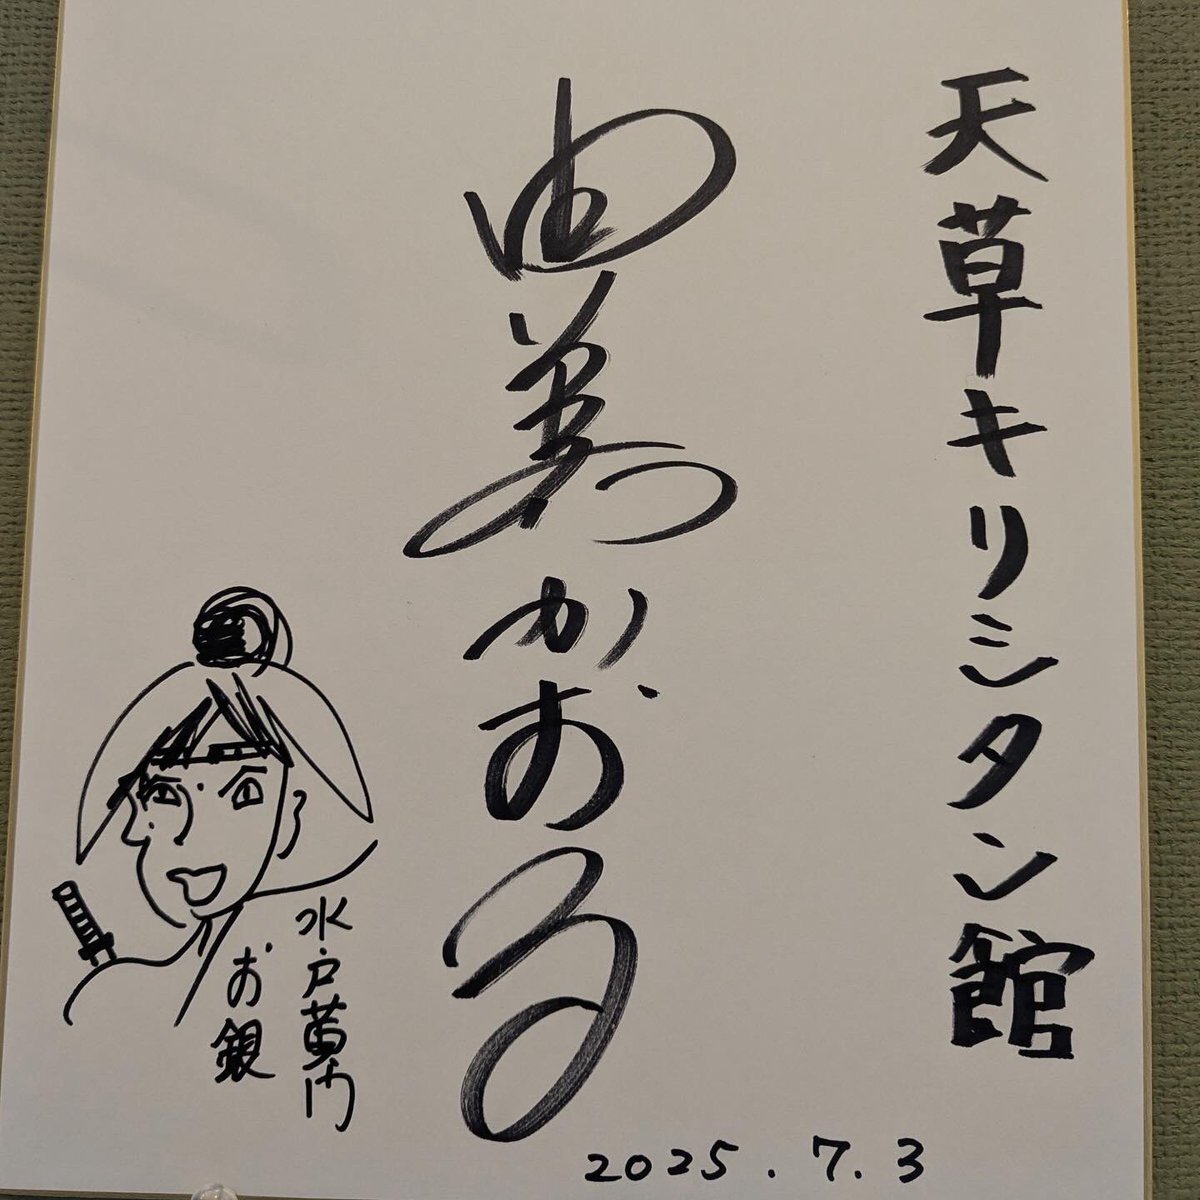 天草キリシタン館
由美かおる
水戸黄門
お銀
2025.7.3